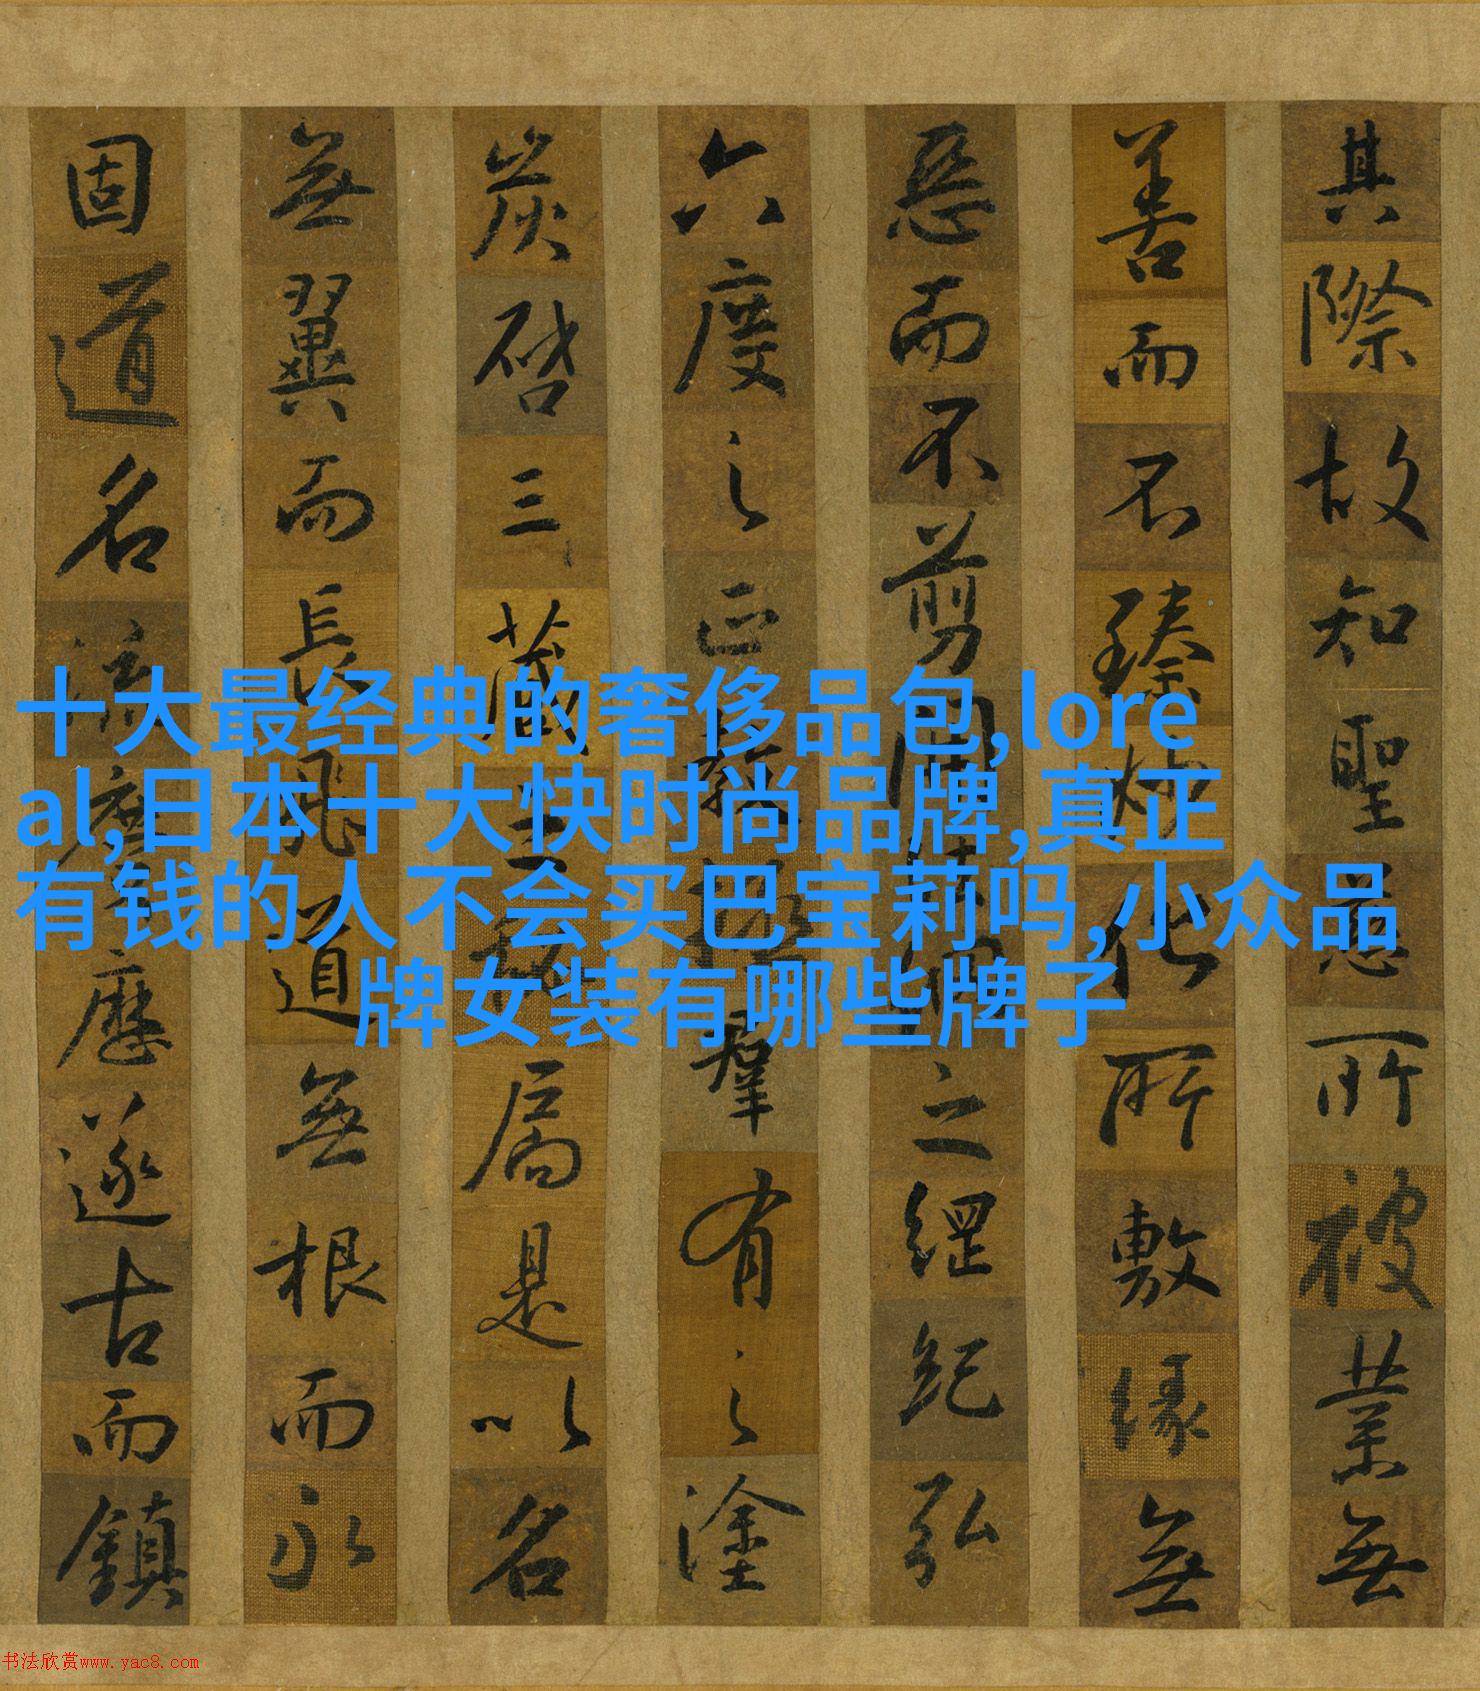 其際故知聖慈所被業無
善而不臻妙化所敷緣無
惡而不剪開法網之綱紀弘
六度之正教拯羣有之塗
炭啓三藏之秘扃是以名
無翼而長飛道無根而永
固道名流慶歷遂古而鎮
十大最经典的奢侈品包,lore
al,日本十大快时尚品牌,真正
有钱的人不会买巴宝莉吗,小众品
牌女装有哪些牌子
书法欣赏www.yac8.com